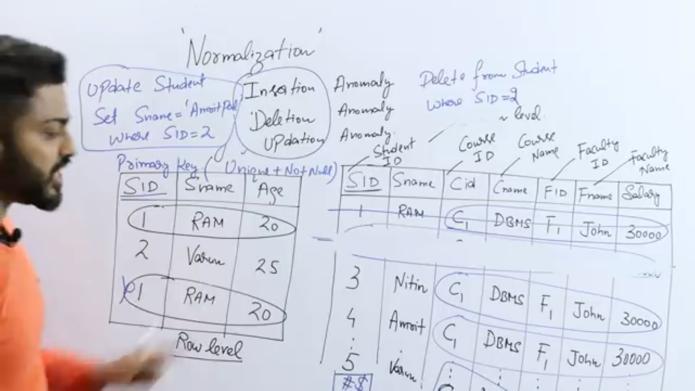 'Normalization'
Update Student
Set Sname = 'Amrit
where SID=2
Insertion Anomaly
Deletion Anomaly
Updation Anomaly
Delete from Student
where SID=2
level
Primary Key (Unique + Not Null)
SID Sname Age
1 RAM 20
2 Varun 25
1 RAM 20
Row level
Student ID
Course ID
Course Name
Faculty ID
Faculty Name
SID Sname Cid Cname FID Fname Salary
1 RAM C1 DBMS F1 John 30000
3 Nitin C1 DBMS F1 John 30000
4 Amrit C1 DBMS F1 John 30000
5 Varun